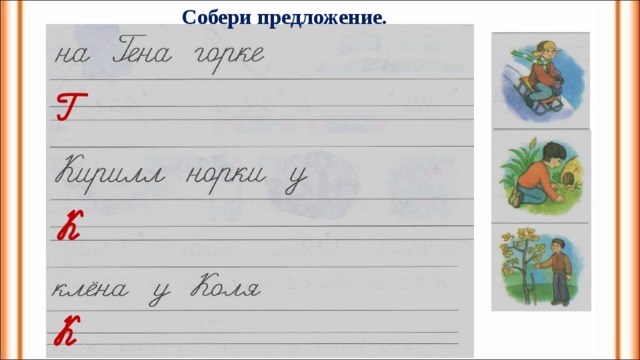 Собери предложение.
на Гена горке
Г
Кирилл норки у
К
клёна у Коля
К